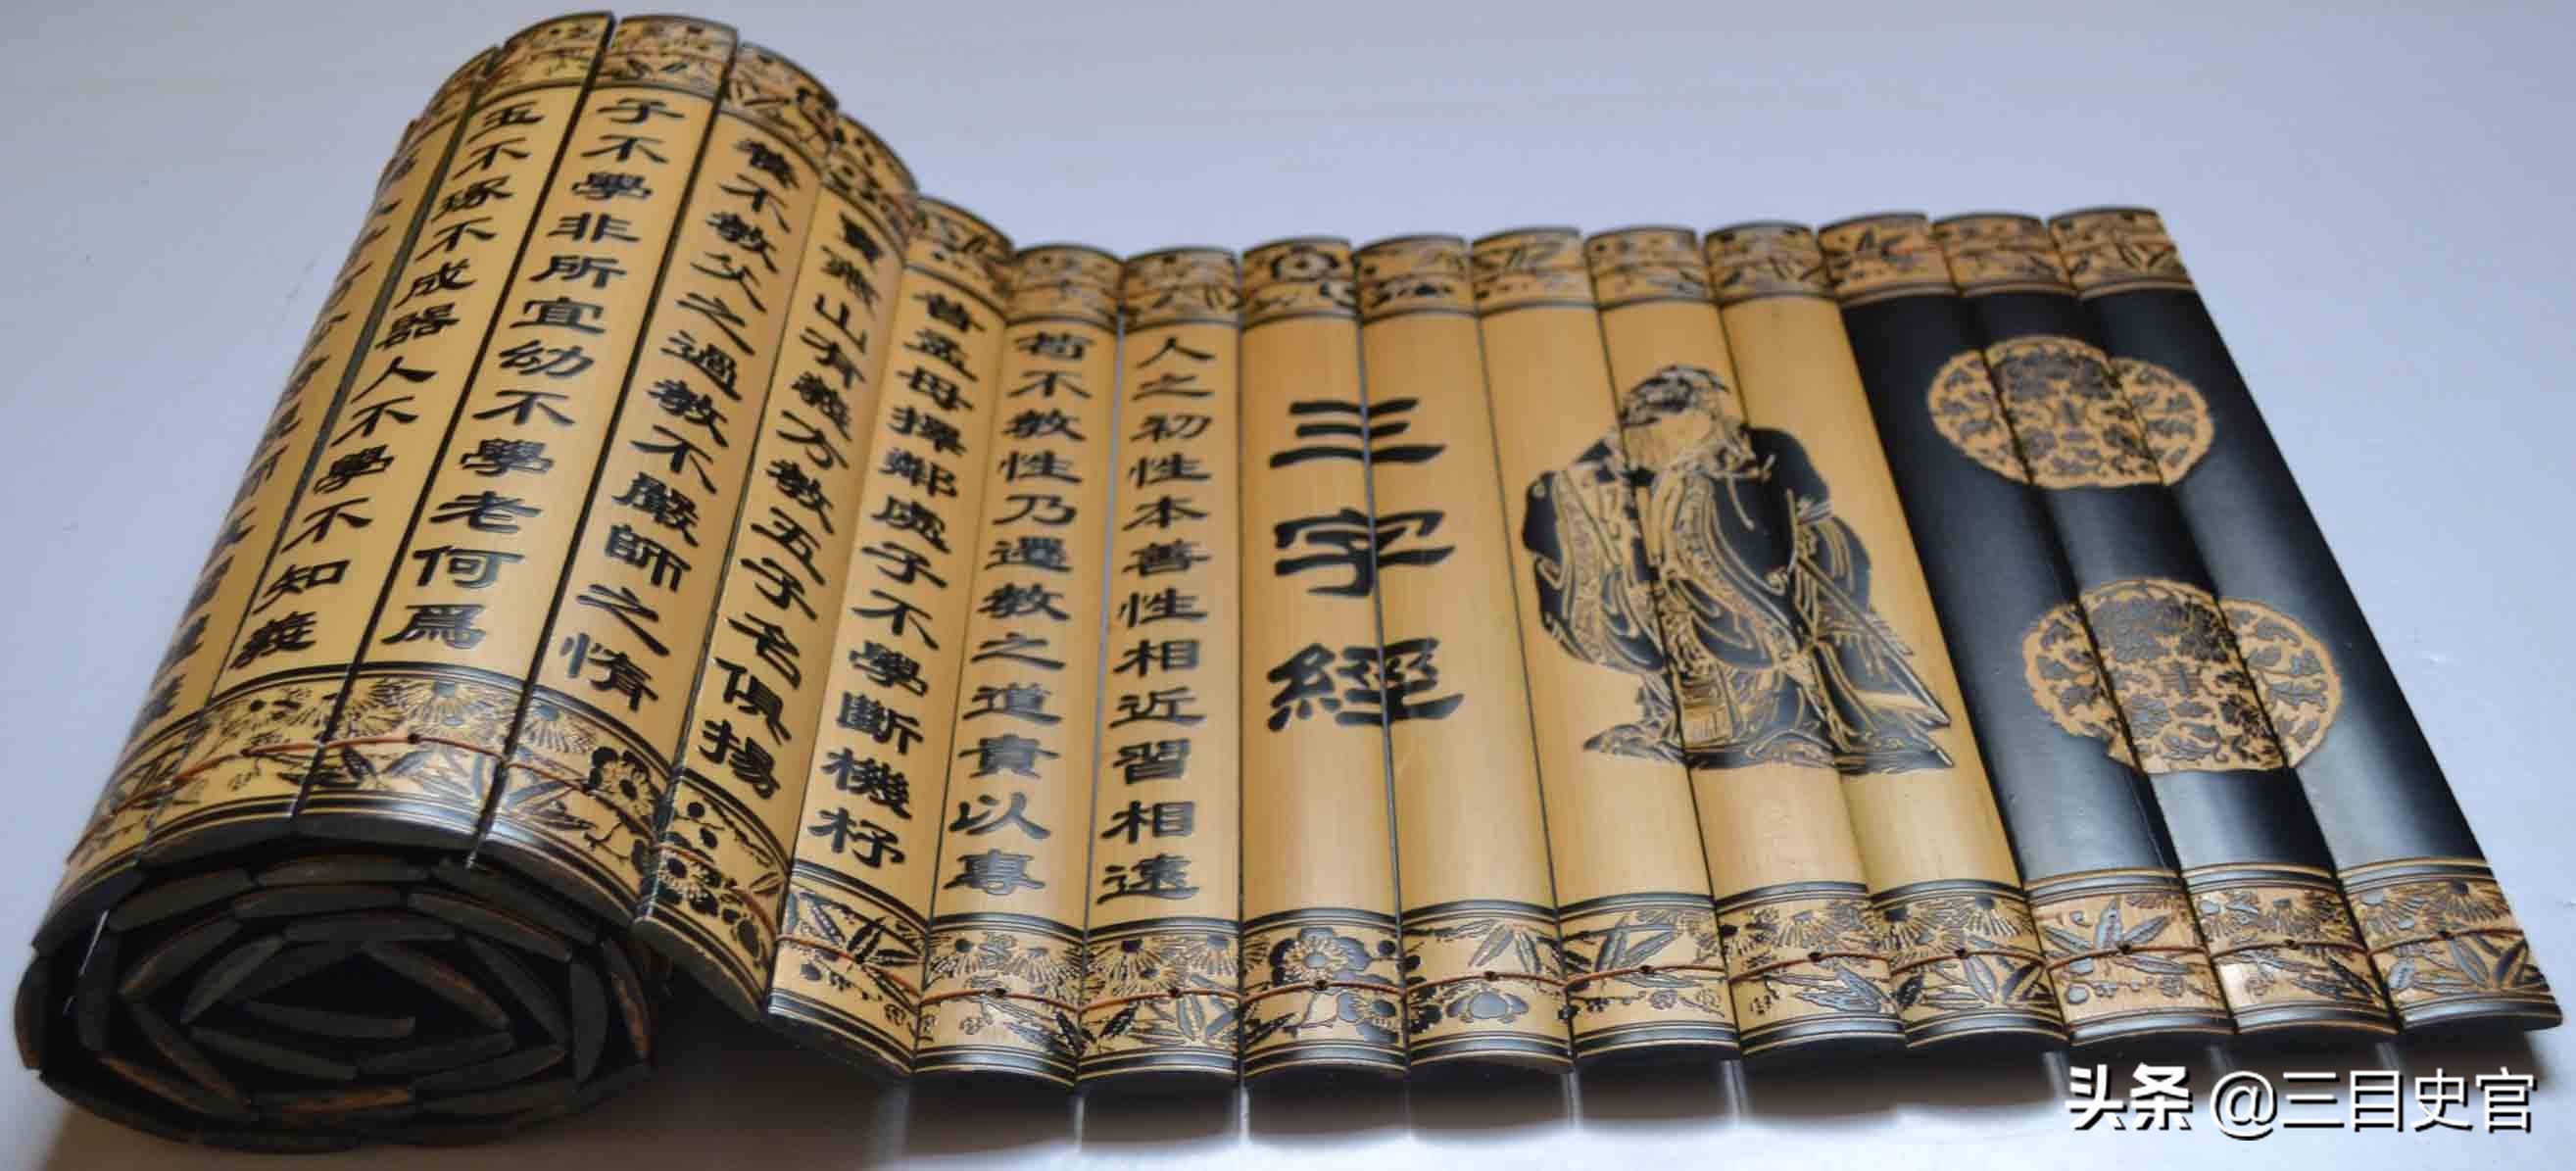 三字經
人之初性本善性相近習相遠
苟不教性乃遷教之道貴以專
昔孟母擇鄰處子不學斷機杼
竇燕山有義方教五子名俱揚
養不教父之過教不嚴師之惰
子不學非所宜幼不學老何爲
玉不琢不成器人不學不知義
头条 @三目史官